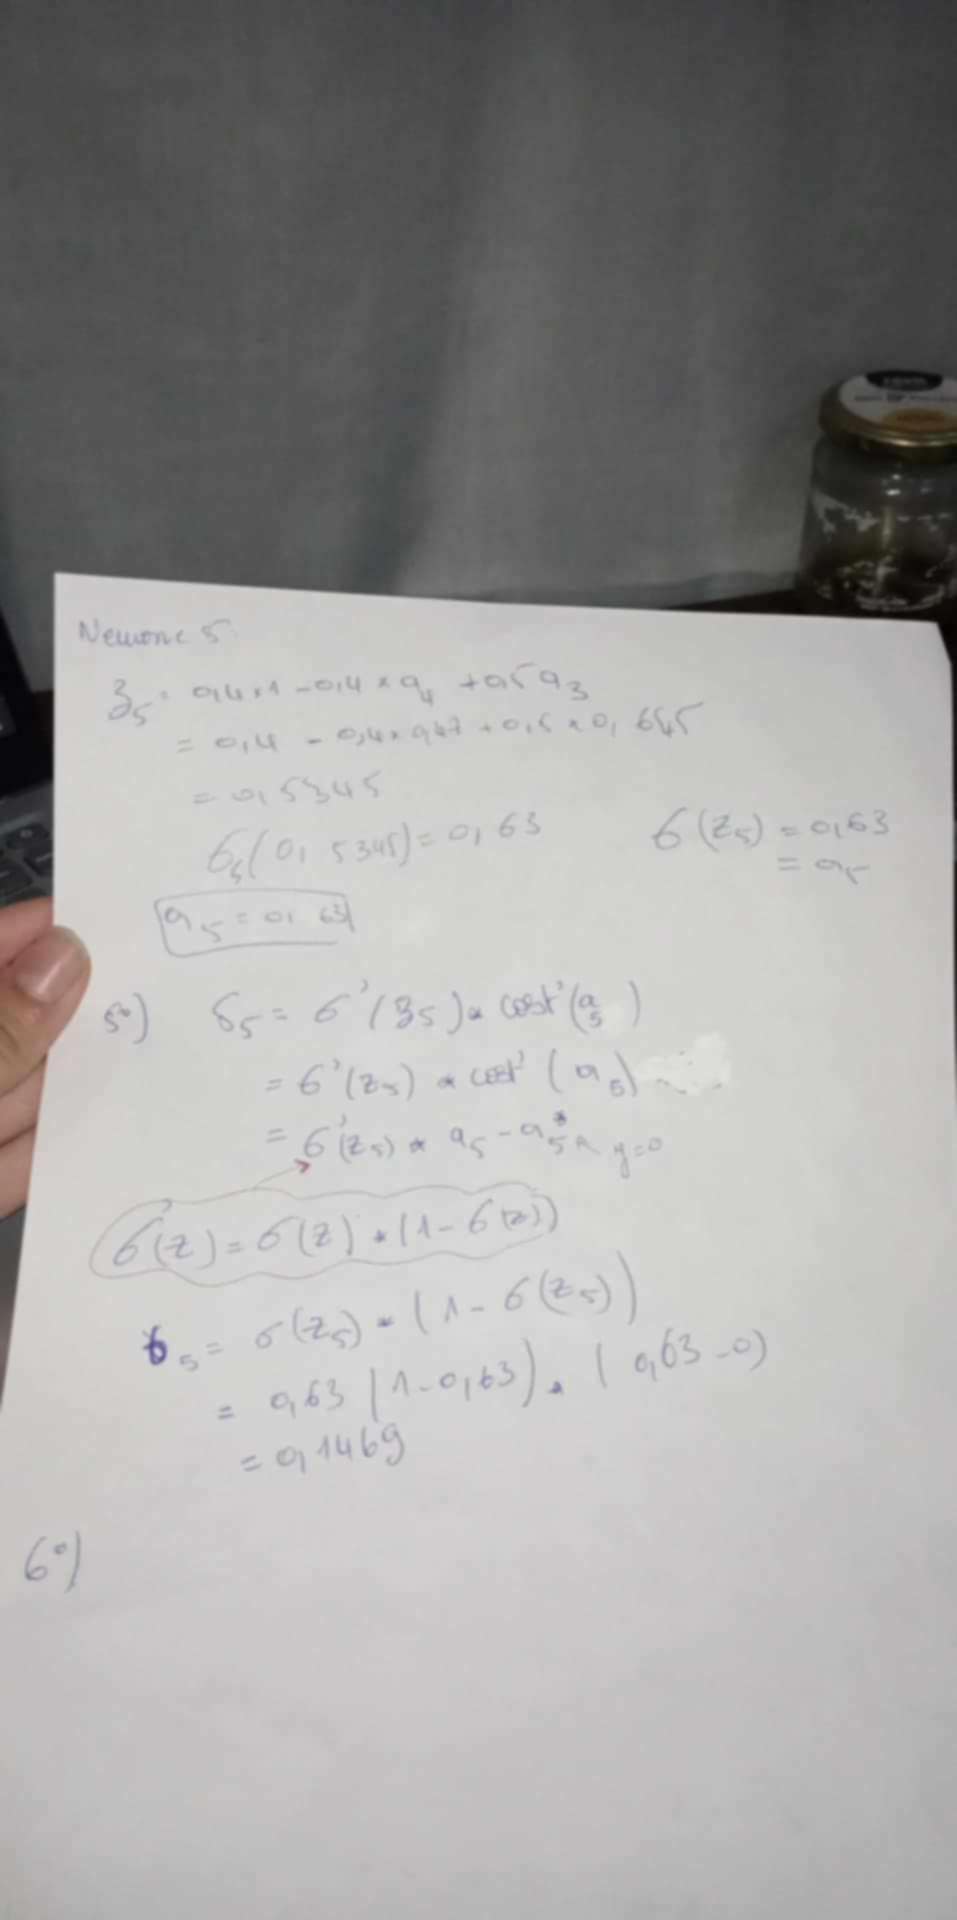 Neurone 5
z₅ = 0,4 × 1 - 0,4 × a₄ + 0,5 a₃
= 0,4 - 0,4 × 0,47 + 0,5 × 0,645
= 0,5345
σ₅(0,5345) = 0,63
σ(z₅) = 0,63
= a₅
a₅ = 0,63
5°) δ₅ = σ'(z₅) * cost'(a₅)
= σ'(z₅) * cost'(a₅)
= σ'(z₅) * a₅ - a₅* y=0
σ'(z) = σ(z) * (1 - σ(z))
δ₅ = σ(z₅) * (1 - σ(z₅))
= 0,63 (1 - 0,63) * (0,63 - 0)
= 0,1469
6°)